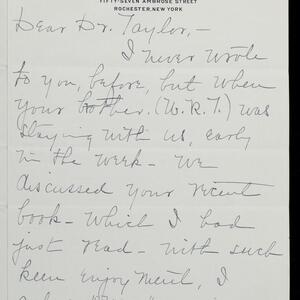 FIFTY-SEVEN AMBROSE STREET
ROCHESTER, NEW YORK
Dear Dr. Taylor,—
I never wrote
to you, before, but when
your brother. (W.R.T.) was
staying with us, early
in the week — we
discussed your recent
book — which I had
just read — with such
keen enjoyment, I